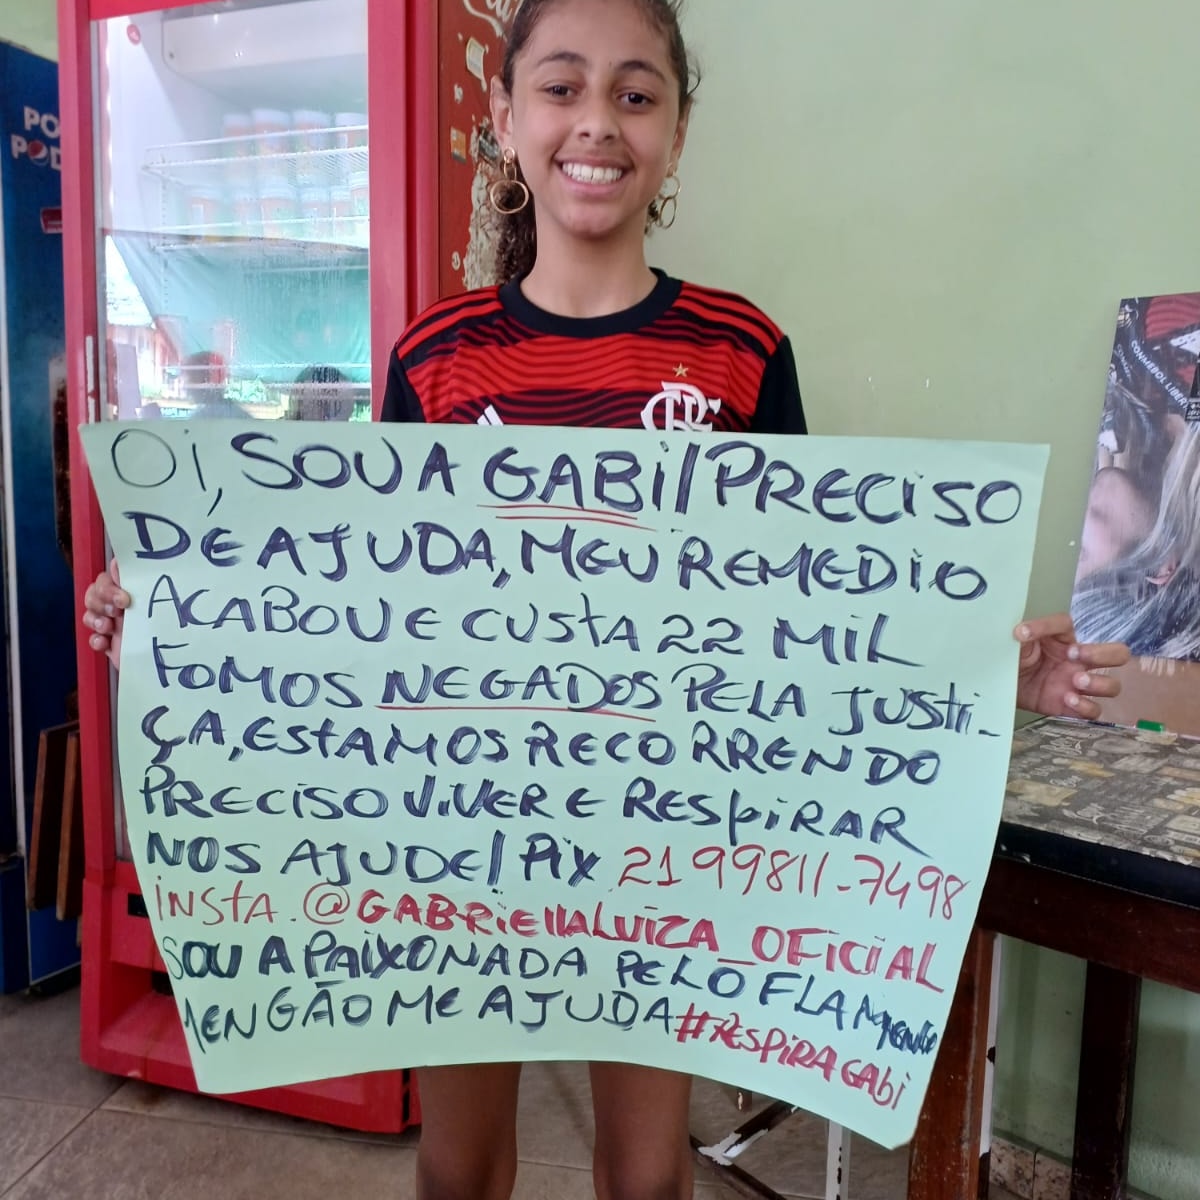 PO
POD
OI, SOU A GABI/PRECISO
DE AJUDA, MEU REMEDIO
ACABOU E CUSTA 22 MIL
FOMOS NEGADOS PELA JUSTI-
ÇA, ESTAMOS RECORRENDO
PRECISO VIVER E RESPIRAR
NOS AJUDE/PIX 21 99811-7498
INSTA.@GABRIELLALUIZA_OFICIAL
SOU APAIXONADA PELO FLAMENGO
MENGÃO ME AJUDA#RESPIRAGABI
CONMEBOL LIBER